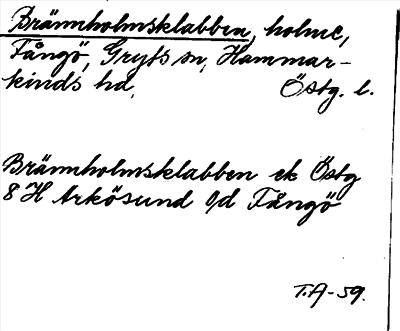 Brännholmsklabben, holme,
Fångö, Gryts sn, Hammar-
kinds hd, Östg. l.
Brännholmsklabben ek Östg
8 H Arkösund o/d Fångö
T.A-59.